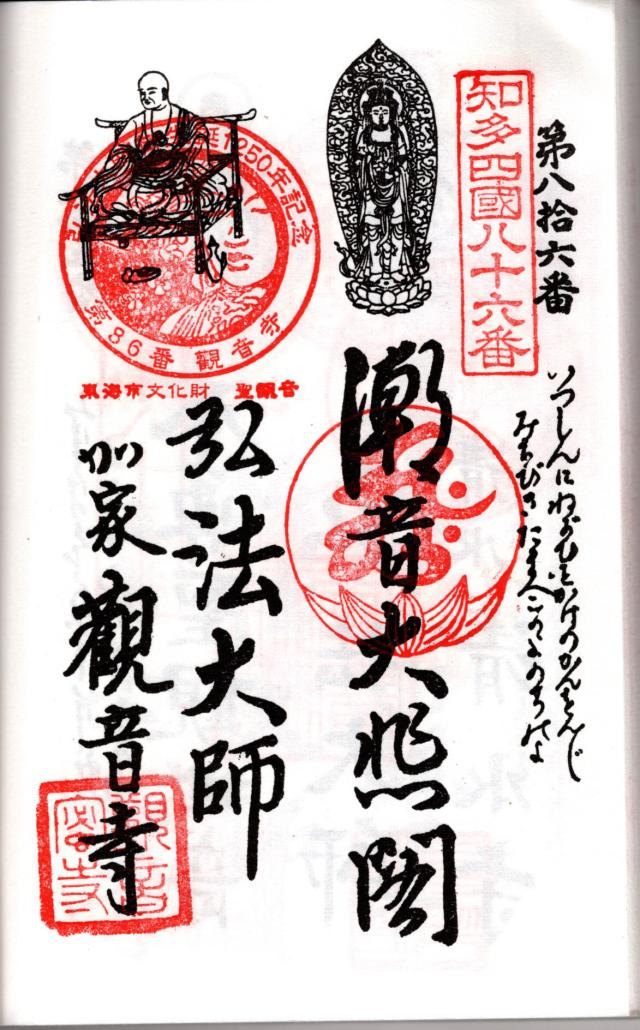 第八拾六番
知多四國八十六番
いつしんにねがひをかけのかんをんじ
みちびきたまへこのよのちのよ
潮音大悲閣
弘法大師
加家觀音寺
1250年記念
第86番 觀音寺
東海市文化財 聖観音